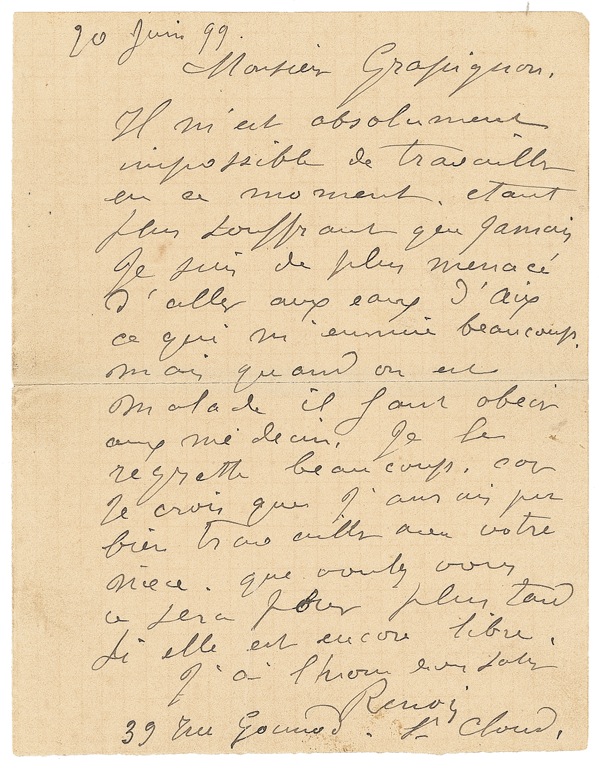 20 Juin 99.
Monsieur Grapignon.
Il m'est absolument
impossible de travailler
en ce moment. etant
plus souffrant que jamais
Je suis de plus menacé
d'aller aux eaux d'aix
ce qui m'ennuie beaucoup.
mais quand on est
malade il faut obeir
aux médecin. Je le
regrette beaucoup. car
Je crois que J'aurais pu
bien travailler avec votre
niece. que voulez vous
ce sera pour plus tard
si elle est encore libre.
J'ai l'honneur
Renoir
39 rue Gounod. St Cloud.